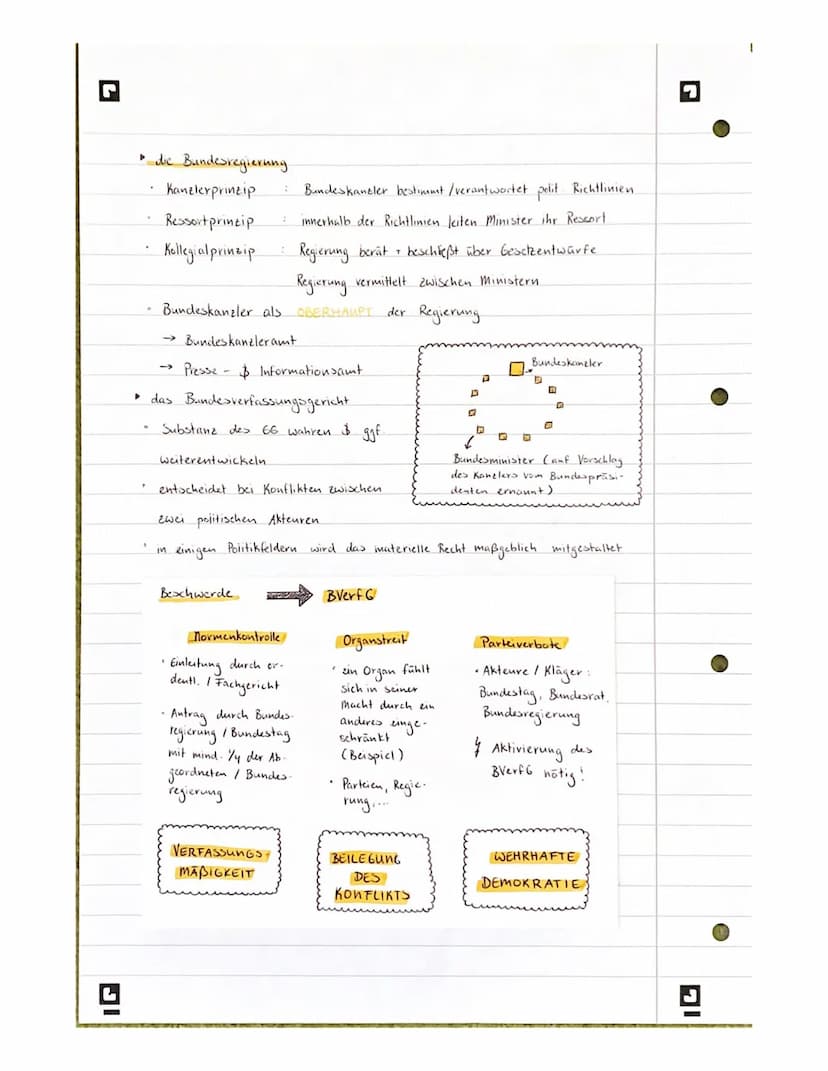 ▸ die Bundesregierung
· Kanzlerprinzip : Bundeskanzler bestimmt /verantwortet polit. Richtlinien
· Ressortprinzip : innerhalb der Richtlinien leiten Minister ihr Ressort
· Kollegialprinzip : Regierung berät + beschließt über Gesetzentwürfe
Regierung vermittelt zwischen Ministern
· Bundeskanzler als OBERHAUPT der Regierung
→ Bundeskanzleramt
→ Presse- & Informationsamt
Bundeskanzler
Bundesminister (auf Vorschlag
des Kanzlers vom Bundespräsi-
denten ernannt)
▸ das Bundesverfassungsgericht
· Substanz des GG wahren & ggf.
weiterentwickeln
· entscheidet bei Konflikten zwischen
zwei politischen Akteuren
· in einigen Politikfeldern wird das materielle Recht maßgeblich mitgestaltet
Beschwerde → BVerfG
Normenkontrolle
· Einleitung durch or-
dentl. / Fachgericht
· Antrag durch Bundes-
regierung / Bundestag
mit mind. 1/4 der Ab-
geordneten / Bundes-
regierung
VERFASSUNGS-
MÄßIGKEIT
Organstreit
· ein Organ fühlt
sich in seiner
Macht durch ein
anderes einge-
schränkt
(Beispiel)
· Parteien, Regie-
rung,...
BEILEGUNG
DES
KONFLIKTS
Parteiverbote
· Akteure / Kläger :
Bundestag, Bundesrat,
Bundesregierung
↯ Aktivierung des
BVerfG nötig!
WEHRHAFTE
DEMOKRATIE